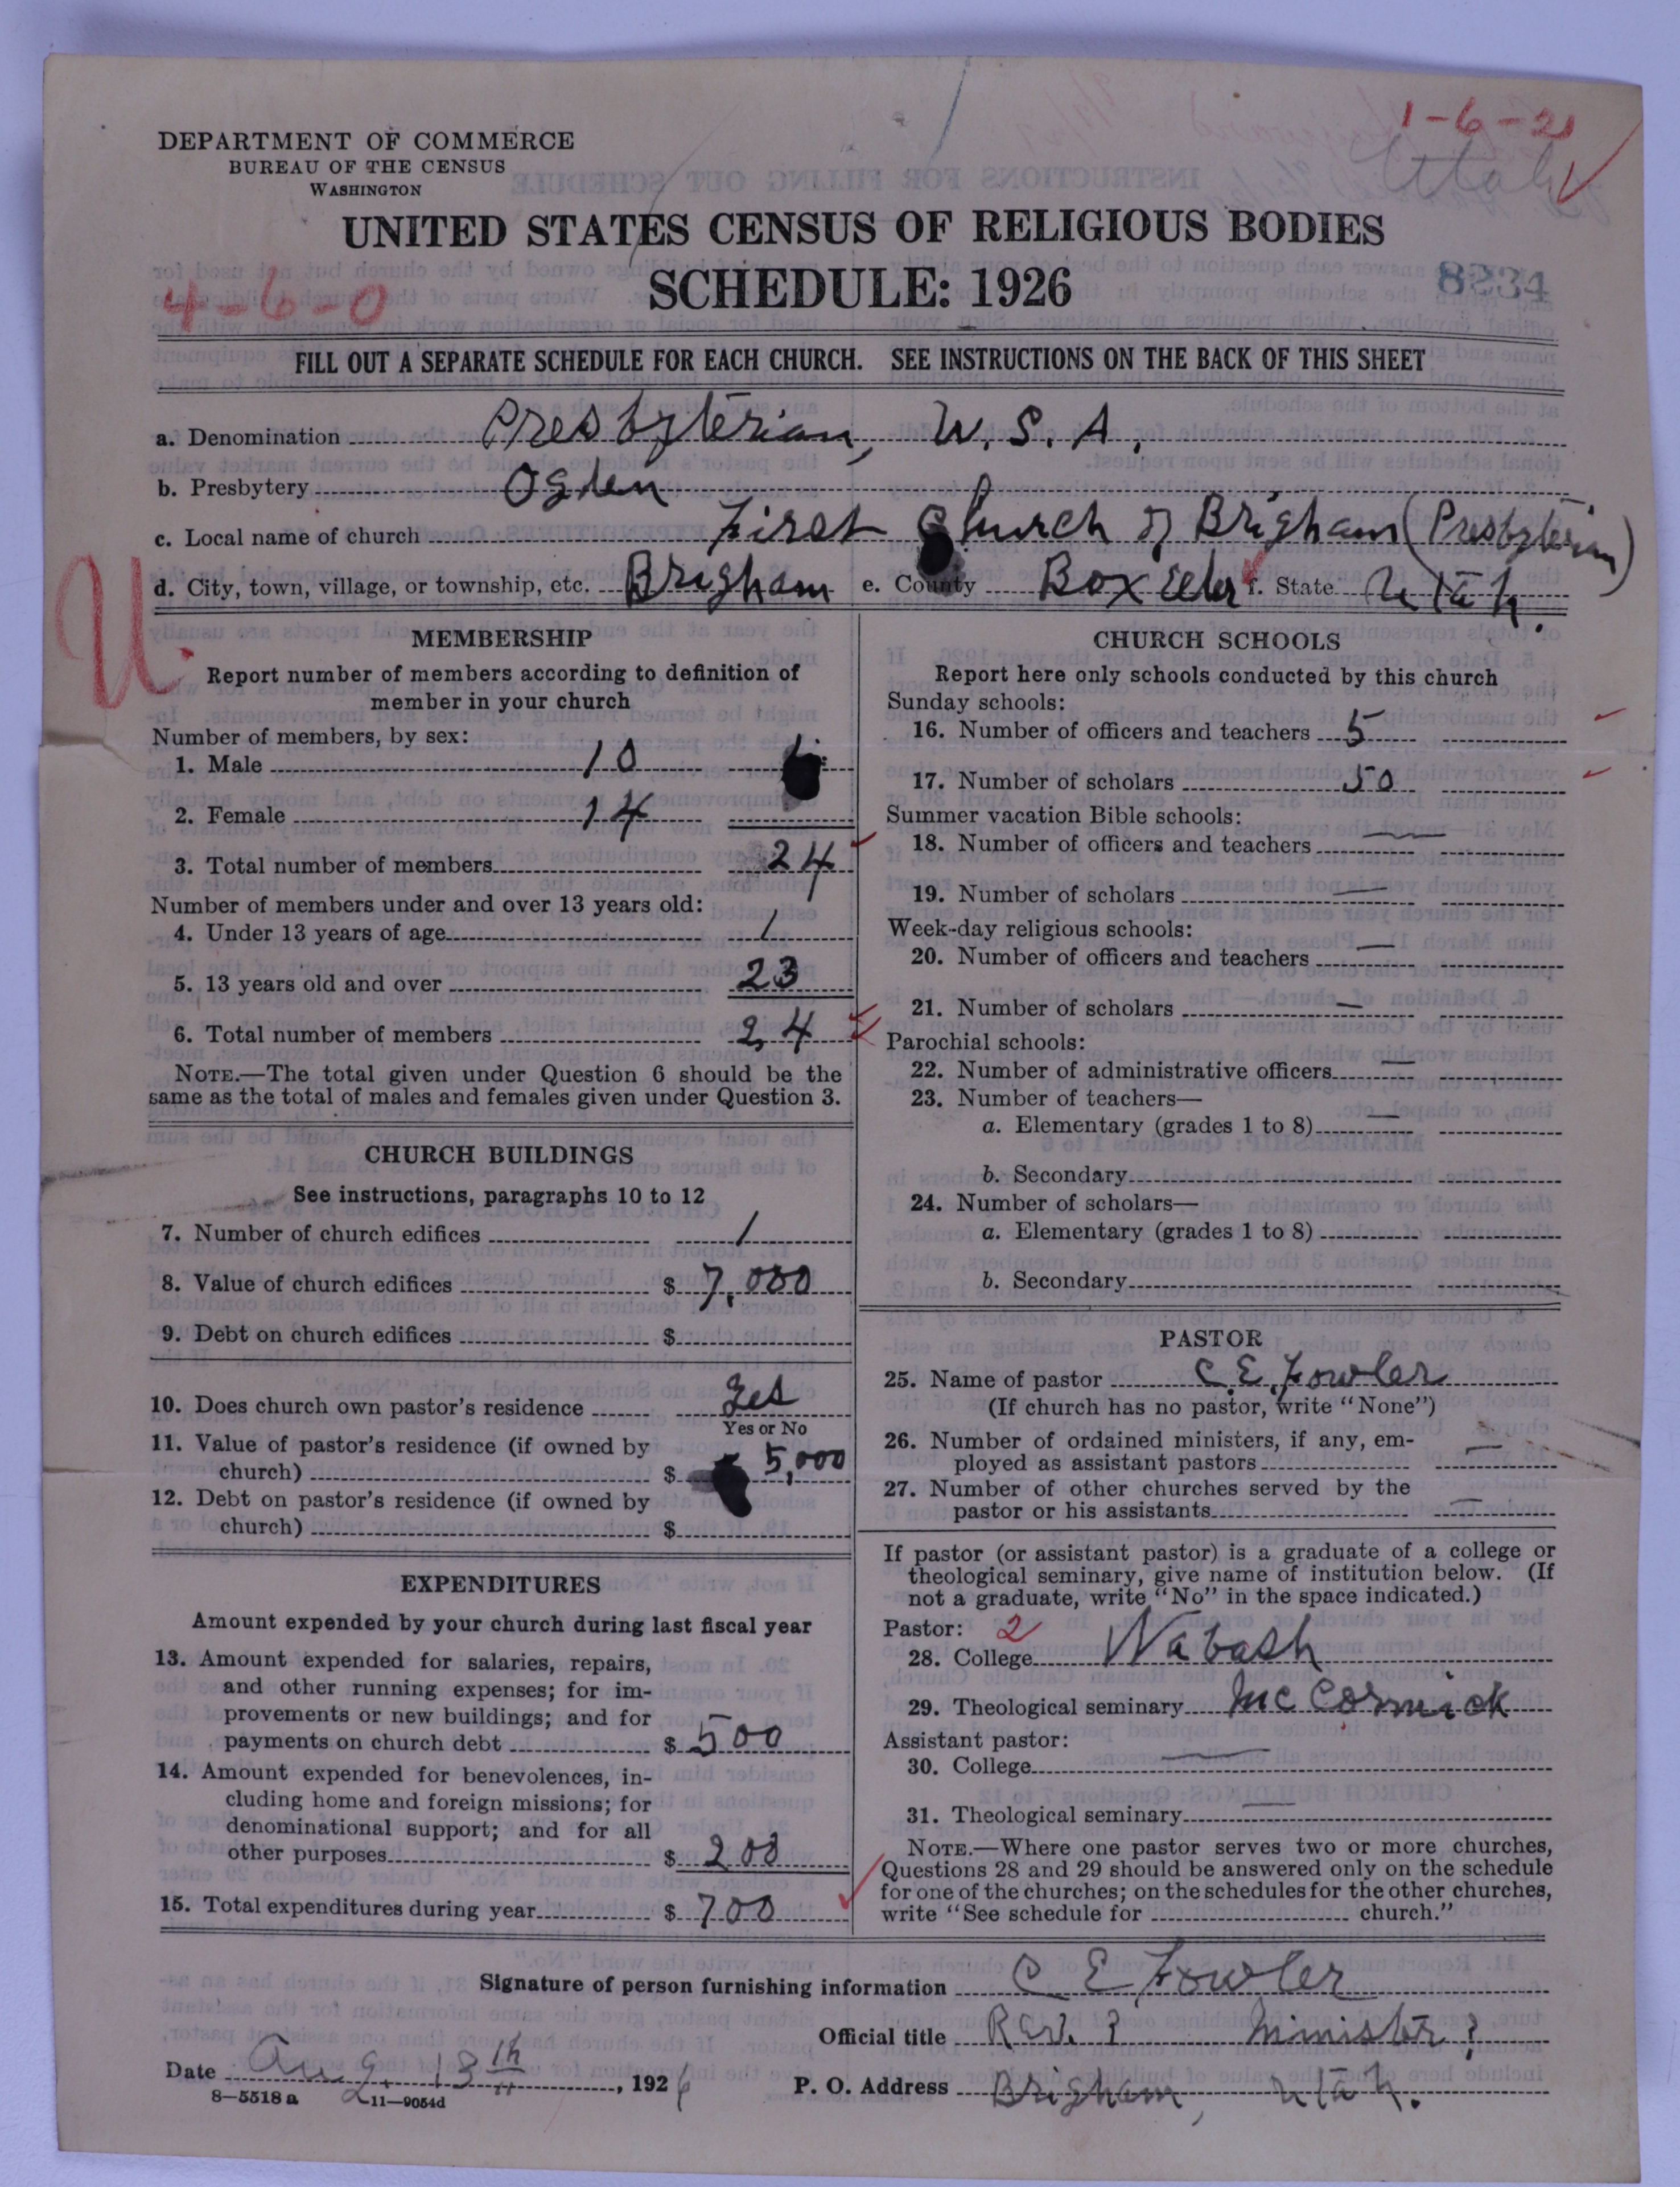 1-6-2
Utah
DEPARTMENT OF COMMERCE
BUREAU OF THE CENSUS
WASHINGTON
UNITED STATES CENSUS OF RELIGIOUS BODIES
SCHEDULE: 1926
8234
4-6-0
FILL OUT A SEPARATE SCHEDULE FOR EACH CHURCH. SEE INSTRUCTIONS ON THE BACK OF THIS SHEET
a. Denomination Presbyterian, U.S.A.
b. Presbytery Ogden
c. Local name of church First Church of Brigham (Presbyterian)
d. City, town, village, or township, etc. Brigham e. County Box Elder f. State Utah.
U
MEMBERSHIP
Report number of members according to definition of
member in your church
Number of members, by sex:
1. Male 10
2. Female 14
3. Total number of members 24
Number of members under and over 13 years old:
4. Under 13 years of age 1
5. 13 years old and over 23
6. Total number of members 24
NOTE.—The total given under Question 6 should be the
same as the total of males and females given under Question 3.
CHURCH BUILDINGS
See instructions, paragraphs 10 to 12
7. Number of church edifices 1
8. Value of church edifices $ 7,000
9. Debt on church edifices $
10. Does church own pastor's residence Yes
Yes or No
11. Value of pastor's residence (if owned by
church) $ 5,000
12. Debt on pastor's residence (if owned by
church) $
EXPENDITURES
Amount expended by your church during last fiscal year
13. Amount expended for salaries, repairs,
and other running expenses; for im-
provements or new buildings; and for
payments on church debt $ 500
14. Amount expended for benevolences, in-
cluding home and foreign missions; for
denominational support; and for all
other purposes $ 200
15. Total expenditures during year $ 700
CHURCH SCHOOLS
Report here only schools conducted by this church
Sunday schools:
16. Number of officers and teachers 5
17. Number of scholars 50
Summer vacation Bible schools:
18. Number of officers and teachers —
19. Number of scholars —
Week-day religious schools:
20. Number of officers and teachers —
21. Number of scholars —
Parochial schools:
22. Number of administrative officers —
23. Number of teachers—
a. Elementary (grades 1 to 8) —
b. Secondary
24. Number of scholars—
a. Elementary (grades 1 to 8)
b. Secondary
PASTOR
25. Name of pastor C. E. Fowler
(If church has no pastor, write "None")
26. Number of ordained ministers, if any, em-
ployed as assistant pastors —
27. Number of other churches served by the
pastor or his assistants —
If pastor (or assistant pastor) is a graduate of a college or
theological seminary, give name of institution below. (If
not a graduate, write "No" in the space indicated.)
Pastor: 2
28. College Wabash
29. Theological seminary McCormick
Assistant pastor:
30. College —
31. Theological seminary —
NOTE.—Where one pastor serves two or more churches,
Questions 28 and 29 should be answered only on the schedule
for one of the churches; on the schedules for the other churches,
write "See schedule for church."
Signature of person furnishing information C E Fowler
Official title Rev. ? Minister ?
Date Aug. 13th, 1926
P. O. Address Brigham, Utah.
8—5518 a 11—9054d